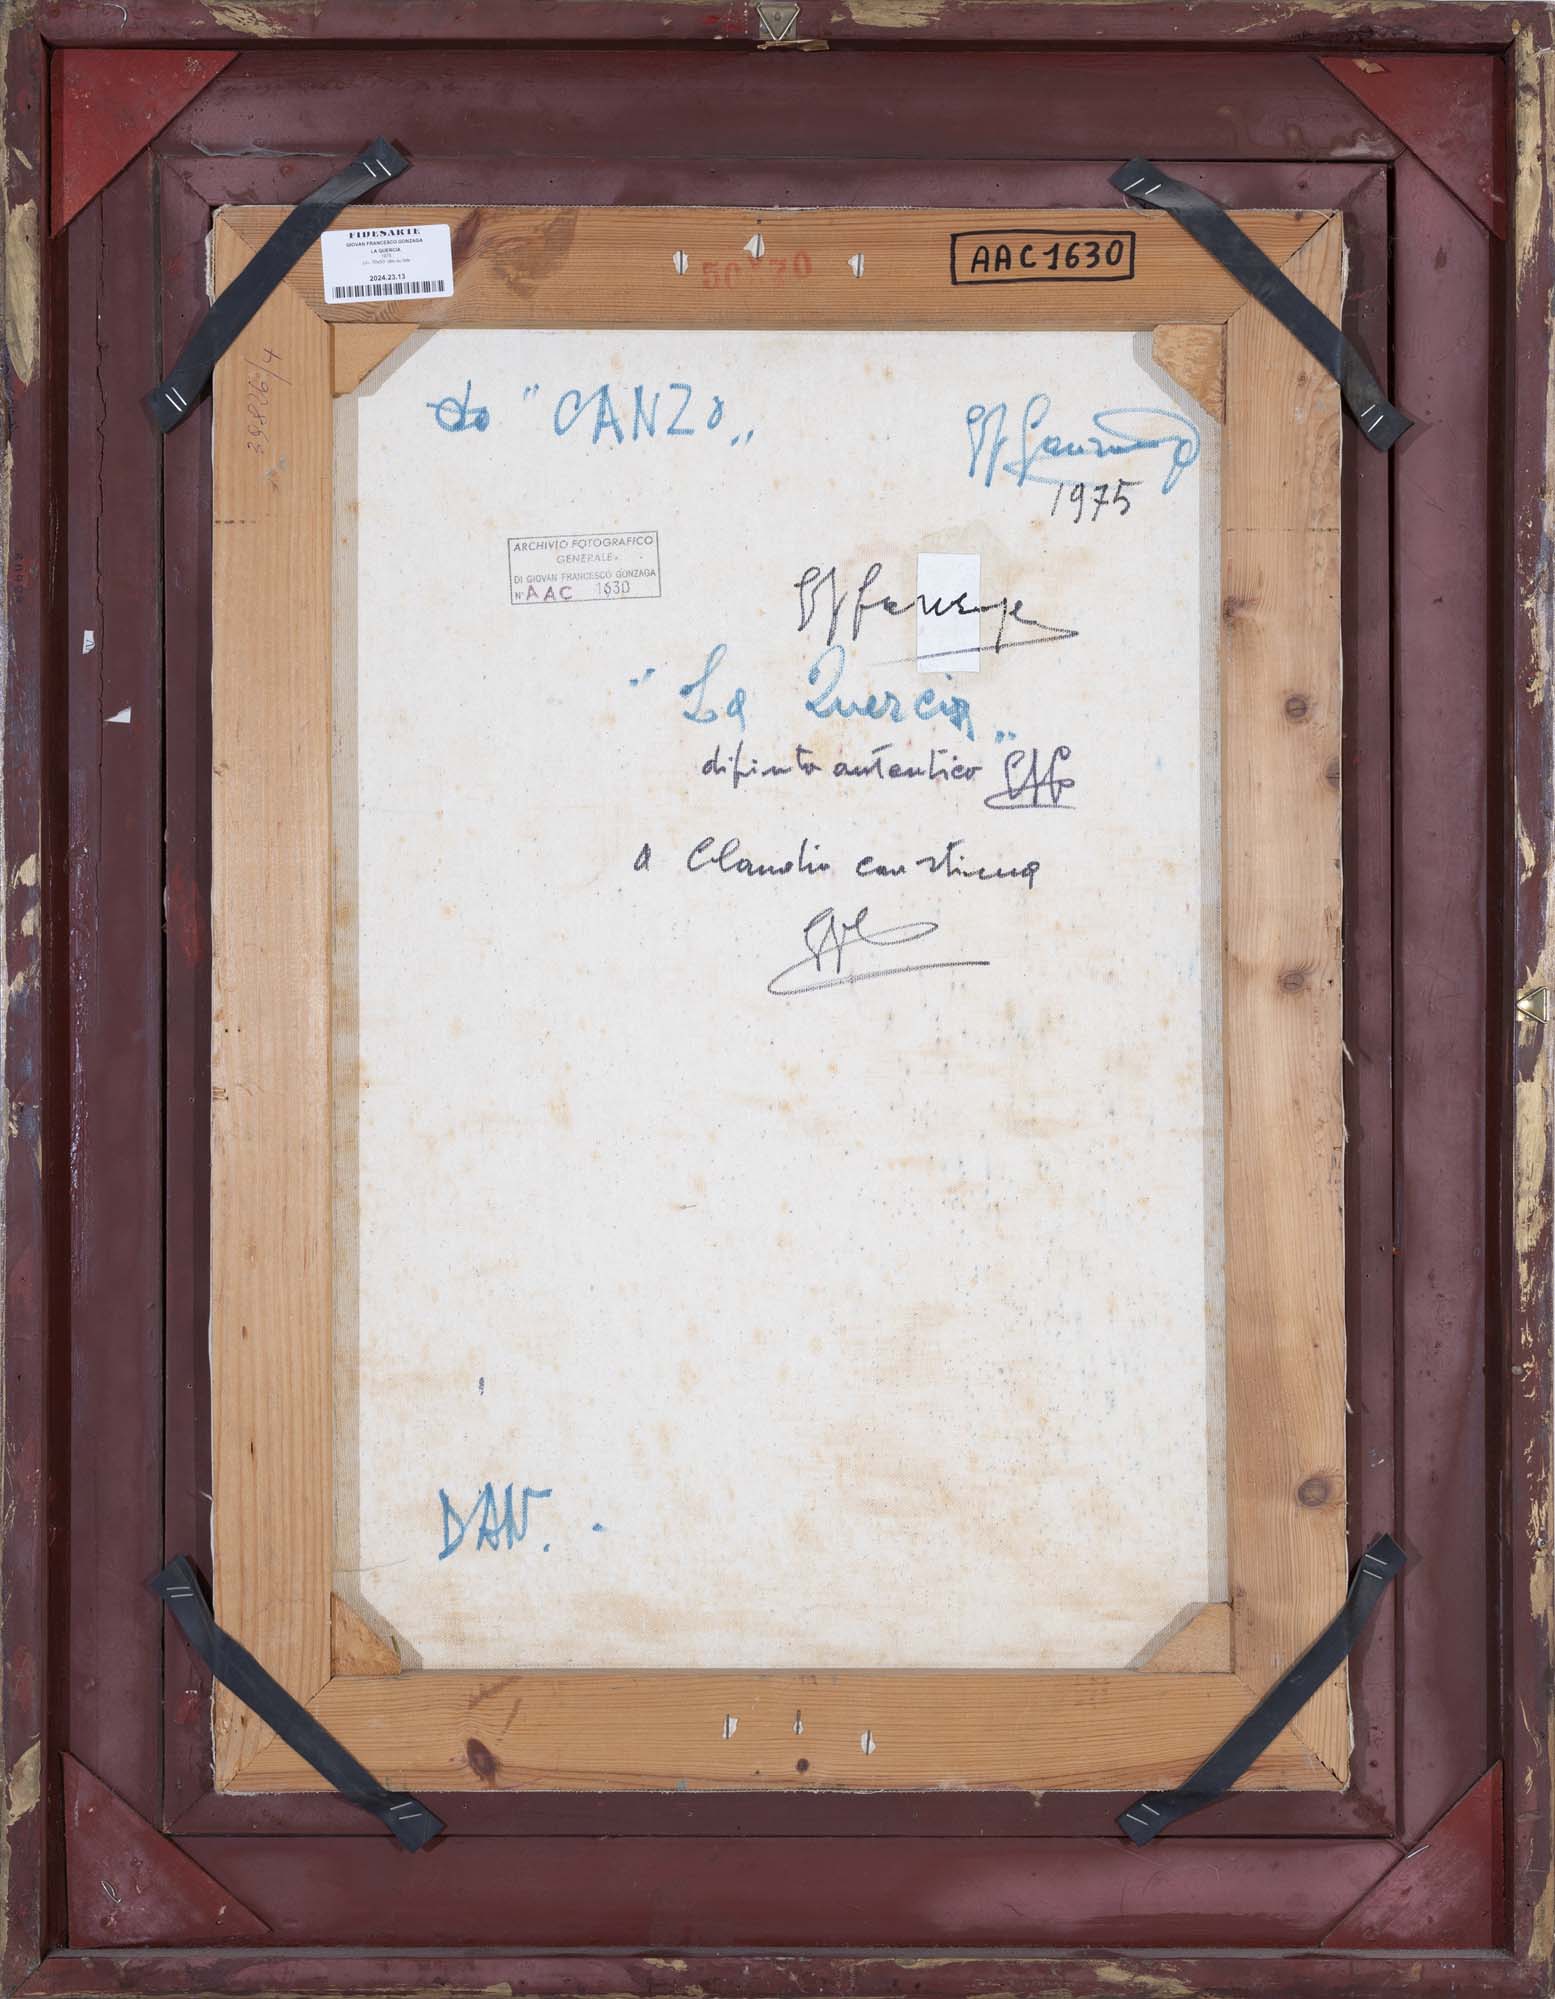 FIDESARTE
GIOVAN FRANCESCO GONZAGA
LA QUERCIA
1975
2024.23.13
50x70
AAC1630
39826/4
"CANZO„
GfGonzaga
1975
ARCHIVIO FOTOGRAFICO
GENERALE
DI GIOVAN FRANCESCO GONZAGA
N° AAC 1630
GfGonzaga
"La Quercia„
dipinto autentico GfG
a Claudio con stima
GfG
DAN.